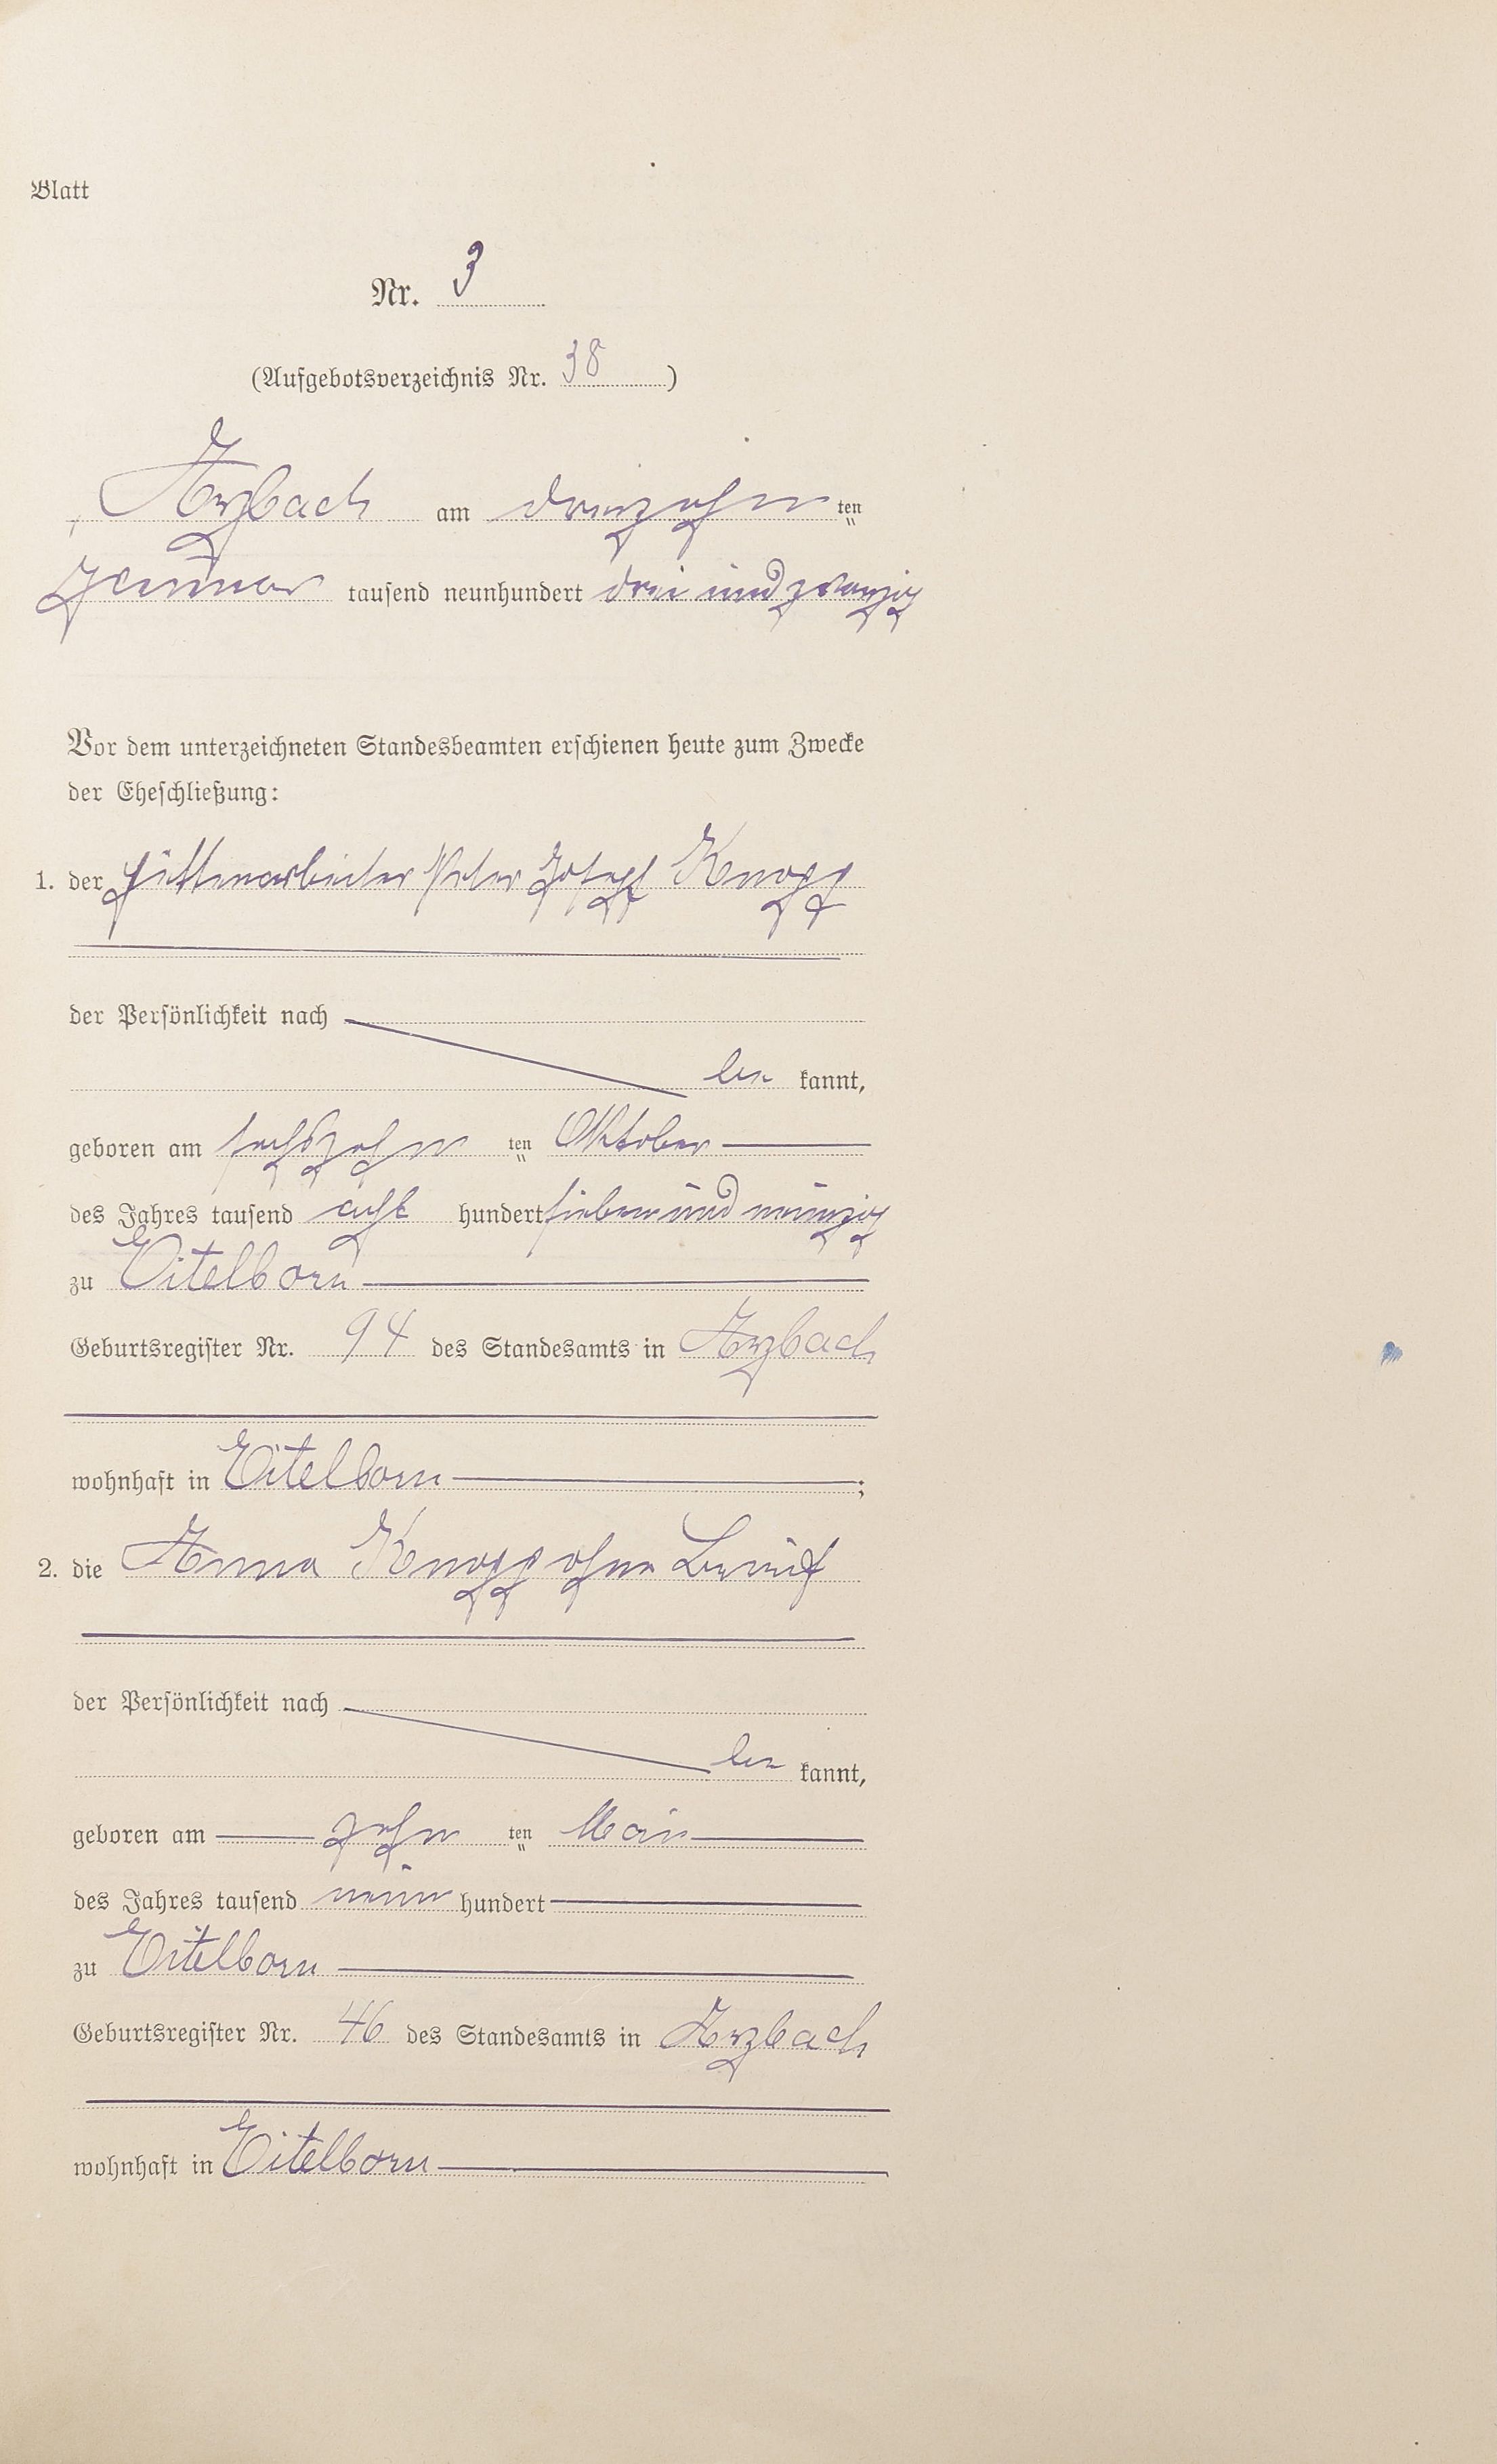 Blatt
Nr. 3
(Aufgebotsverzeichnis Nr. 38)
Arzbach am dreizehn ten
Januar tausend neunhundert drei und zwanzig
Vor dem unterzeichneten Standesbeamten erschienen heute zum Zwecke
der Eheschließung:
1. der Hüttenarbeiter Peter Josef Knopp
der Persönlichkeit nach
be kannt,
geboren am sechszehn ten Oktober
des Jahres tausend acht hundert sieben und neunzig
zu Eitelborn
Geburtsregister Nr. 94 des Standesamts in Arzbach
wohnhaft in Eitelborn ;
2. die Anna Knopp ohne Beruf
der Persönlichkeit nach
be kannt,
geboren am zehn ten
des Jahres tausend neun hundert
zu Eitelborn
Geburtsregister Nr. 46 des Standesamts in Arzbach
wohnhaft in Eitelborn